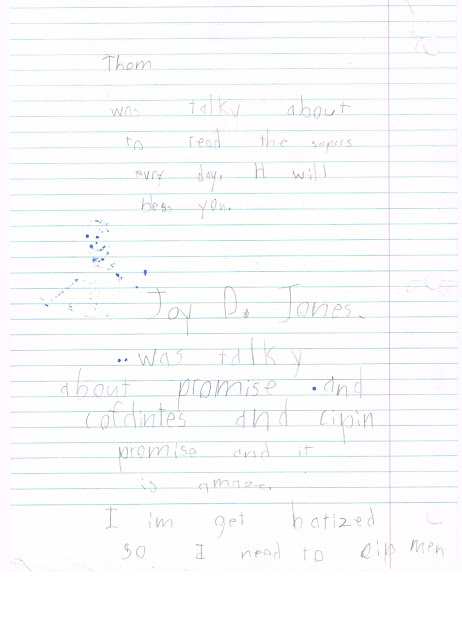 Thom
was talky about
to read the supurs
evry day, It will
bless you.
Joy D. Jones.
was talky
about promise and
cofdintes and cipin
promise and it
is amaze.
I im get batized
so I need to men